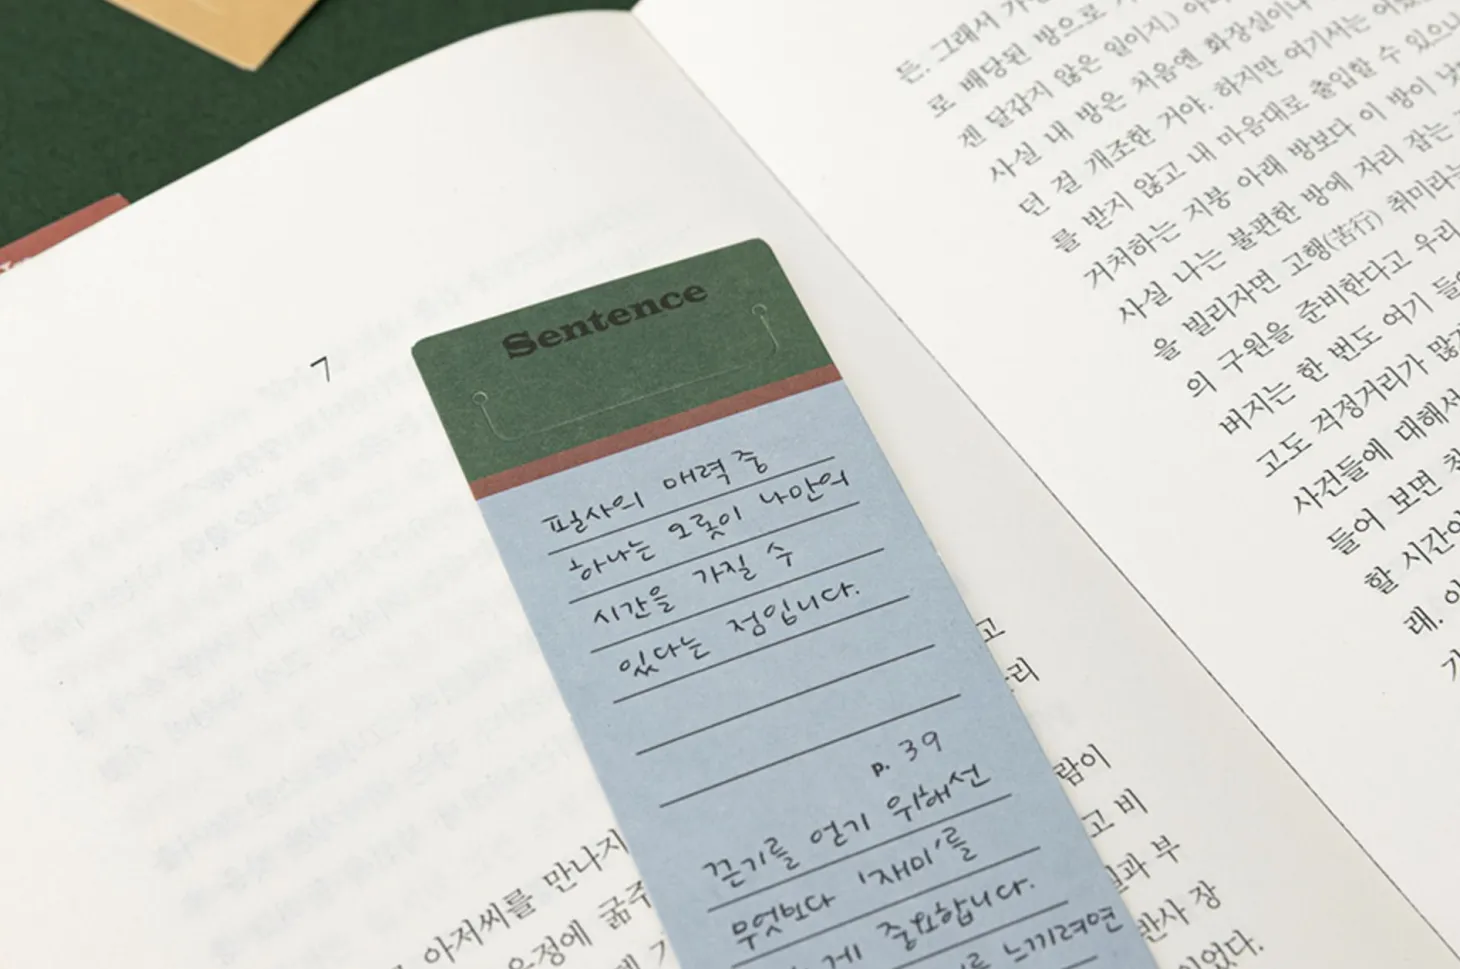 7
Sentence
필사의 매력 중
하나는 오롯이 나만의
시간을 가질 수
있다는 점입니다.
p. 39
끈기를 얻기 위해선
무엇보다 '재미'를
게 중요합니다.
를 느끼려면
고
리
람이
고 비
과 부
반사 장
이었다.
아저씨를 만나지
우정에 굶주
든. 그래서
로 배당된 방으로
겐 달갑지 않은 일이지.)
사실 내 방은 처음엔 화장실이나
던 걸 개조한 거야. 하지만 여기서는
를 받지 않고 내 마음대로 출입할 수 있으니
거처하는 지붕 아래 방보다 이 방이
사실 나는 불편한 방에 자리 잡는
을 빌리자면 고행(苦行) 취미라는
의 구원을 준비한다고 우리
버지는 한 번도 여기
고도 걱정거리가 많
사건들에 대해서
들어 보면
할 시간이
래.